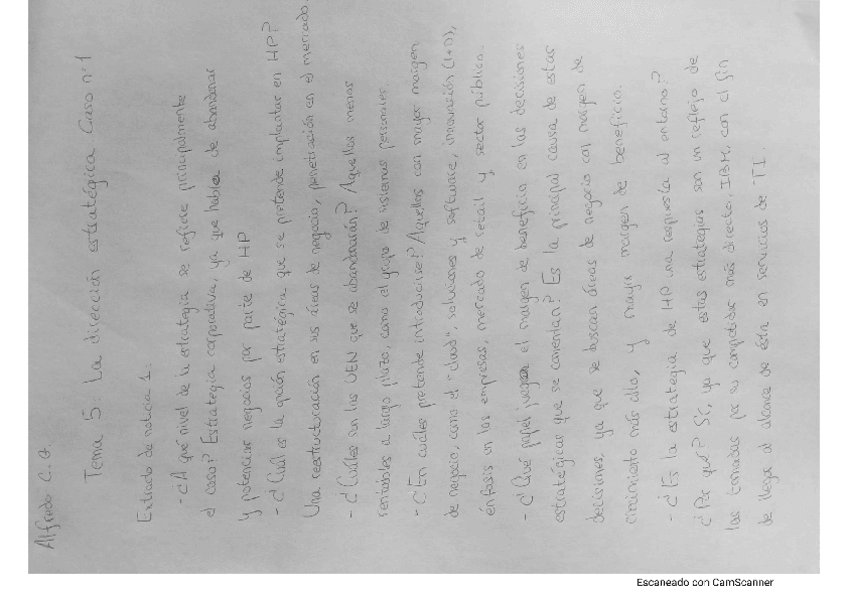 Alfredo C. G.
Tema 5: La dirección estratégica Caso nº1
Extracto de noticia 1.
- ¿A qué nivel de la estrategia se refiere principalmente
el caso? Estrategia corporativa, ya que hablan de abandonar
y potenciar negocios por parte de HP
- ¿Cuál es la opción estratégica que se pretende implantar en HP?
Una reestructuración en sus áreas de negocio, penetración en el mercado.
- ¿Cuáles son las UEN que se abandonarán? Aquellas menos
rentables a largo plazo, como el grupo de sistemas personales.
- ¿En cuáles pretende introducirse? Aquellos con mayor margen
de negocio, como el "cloud", soluciones y software, innovación (I+D),
énfasis en las empresas, mercado de retail y sector público.
- ¿Qué papel juega el margen de beneficio en las decisiones
estratégicas que se comentan? Es la principal causa de estas
decisiones, ya que se buscan áreas de negocio con margen de
crecimiento más alto, y mayor margen de beneficio.
- ¿Es la estrategia de HP una respuesta al entorno?
¿Por qué? Sí, ya que estas estrategias son un reflejo de
las tomadas por su competidor más directo, IBM, con el fin
de llegar al alcance de ésta en servicios de TI.
Escaneado con CamScanner